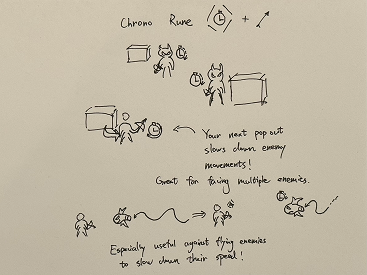 Chrono Rune
+
Your next pop out
slows down enemy
movements!
Great for facing multiple enemies.
Especially useful against flying enemies
to slow down their speed!